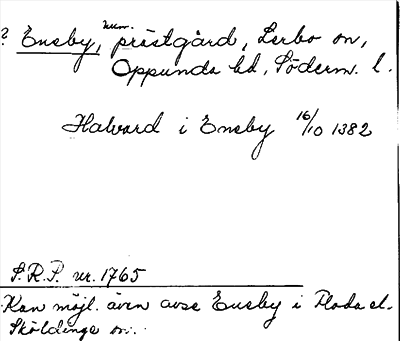 ? Eneby, kum. prästgård, Lerbo sn,
Oppunda hd, Söderm. l.
Halvard i Eneby 16/10 1382
S.R.P. nr. 1765
Kan möjl. även avse Eneby i Floda el.
Sköldinge sn.